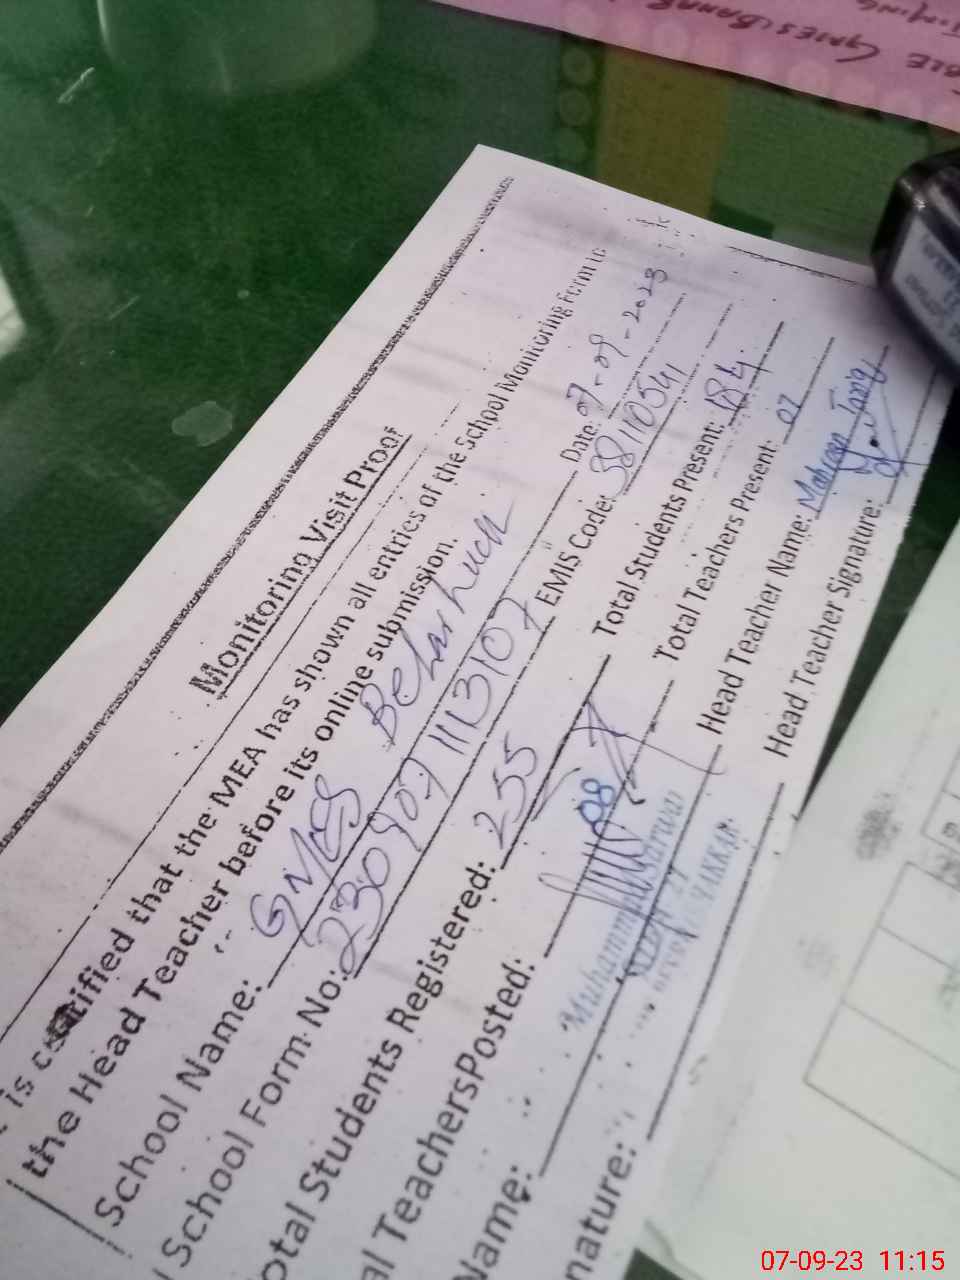 Monitoring Visit Proof
is certified that the MEA has shown all entries of the School Monitoring Form to
the Head Teacher before its online submission.
School Name: GMES Date: 07-09-2023
School Form No: 2309071113107 EMIS Code: 38110541
otal Students Registered: 255 Total Students Present: 184
al TeachersPosted: 08 Total Teachers Present: 07
Name: Muhammad Head Teacher Name:
nature: Head Teacher Signature:
07-09-23 11:15